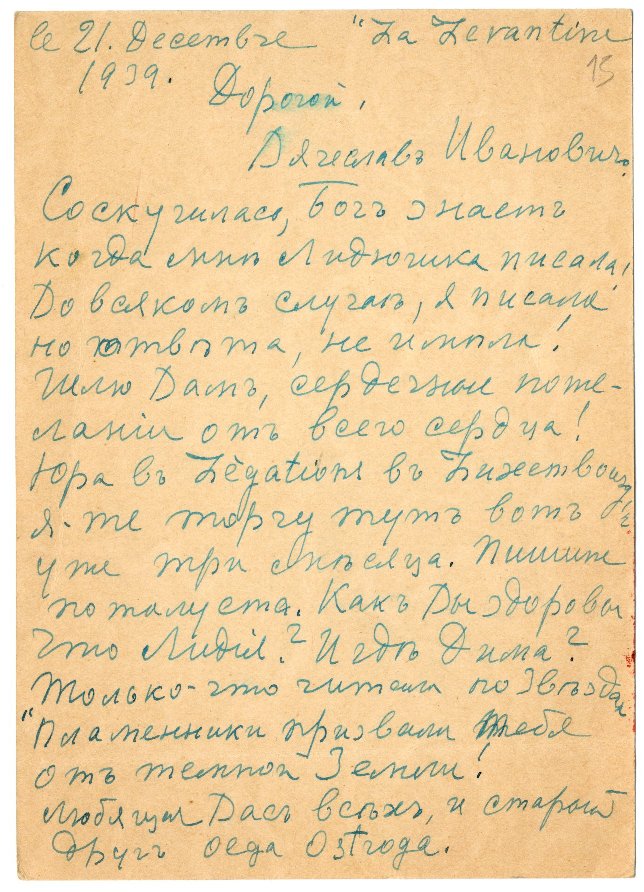 le 21. Decembre "La Levantine
1939. 15
Дорогой,
Вячеславъ Ивановичъ
Соскучилась, Богъ знаетъ
когда мнѣ Лидюшка писала!
Во всякомъ случаѣ, я писала
но отвѣта, не имѣла!
Шлю Вамъ, сердечныя поже-
ланія отъ всего сердца!
Юра въ Légations въ Luxembourg,
я-же торчу тутъ вотъ
уже три мѣсяца. Пишите
пожалуста. Какъ Вы здоровы
Что Лидія? И гдѣ Дима?
Только-что читали по звѣздам
"Пламенники призвали тебя
отъ темной Земли!
Любящая Васъ всѣхъ, и старый
другъ